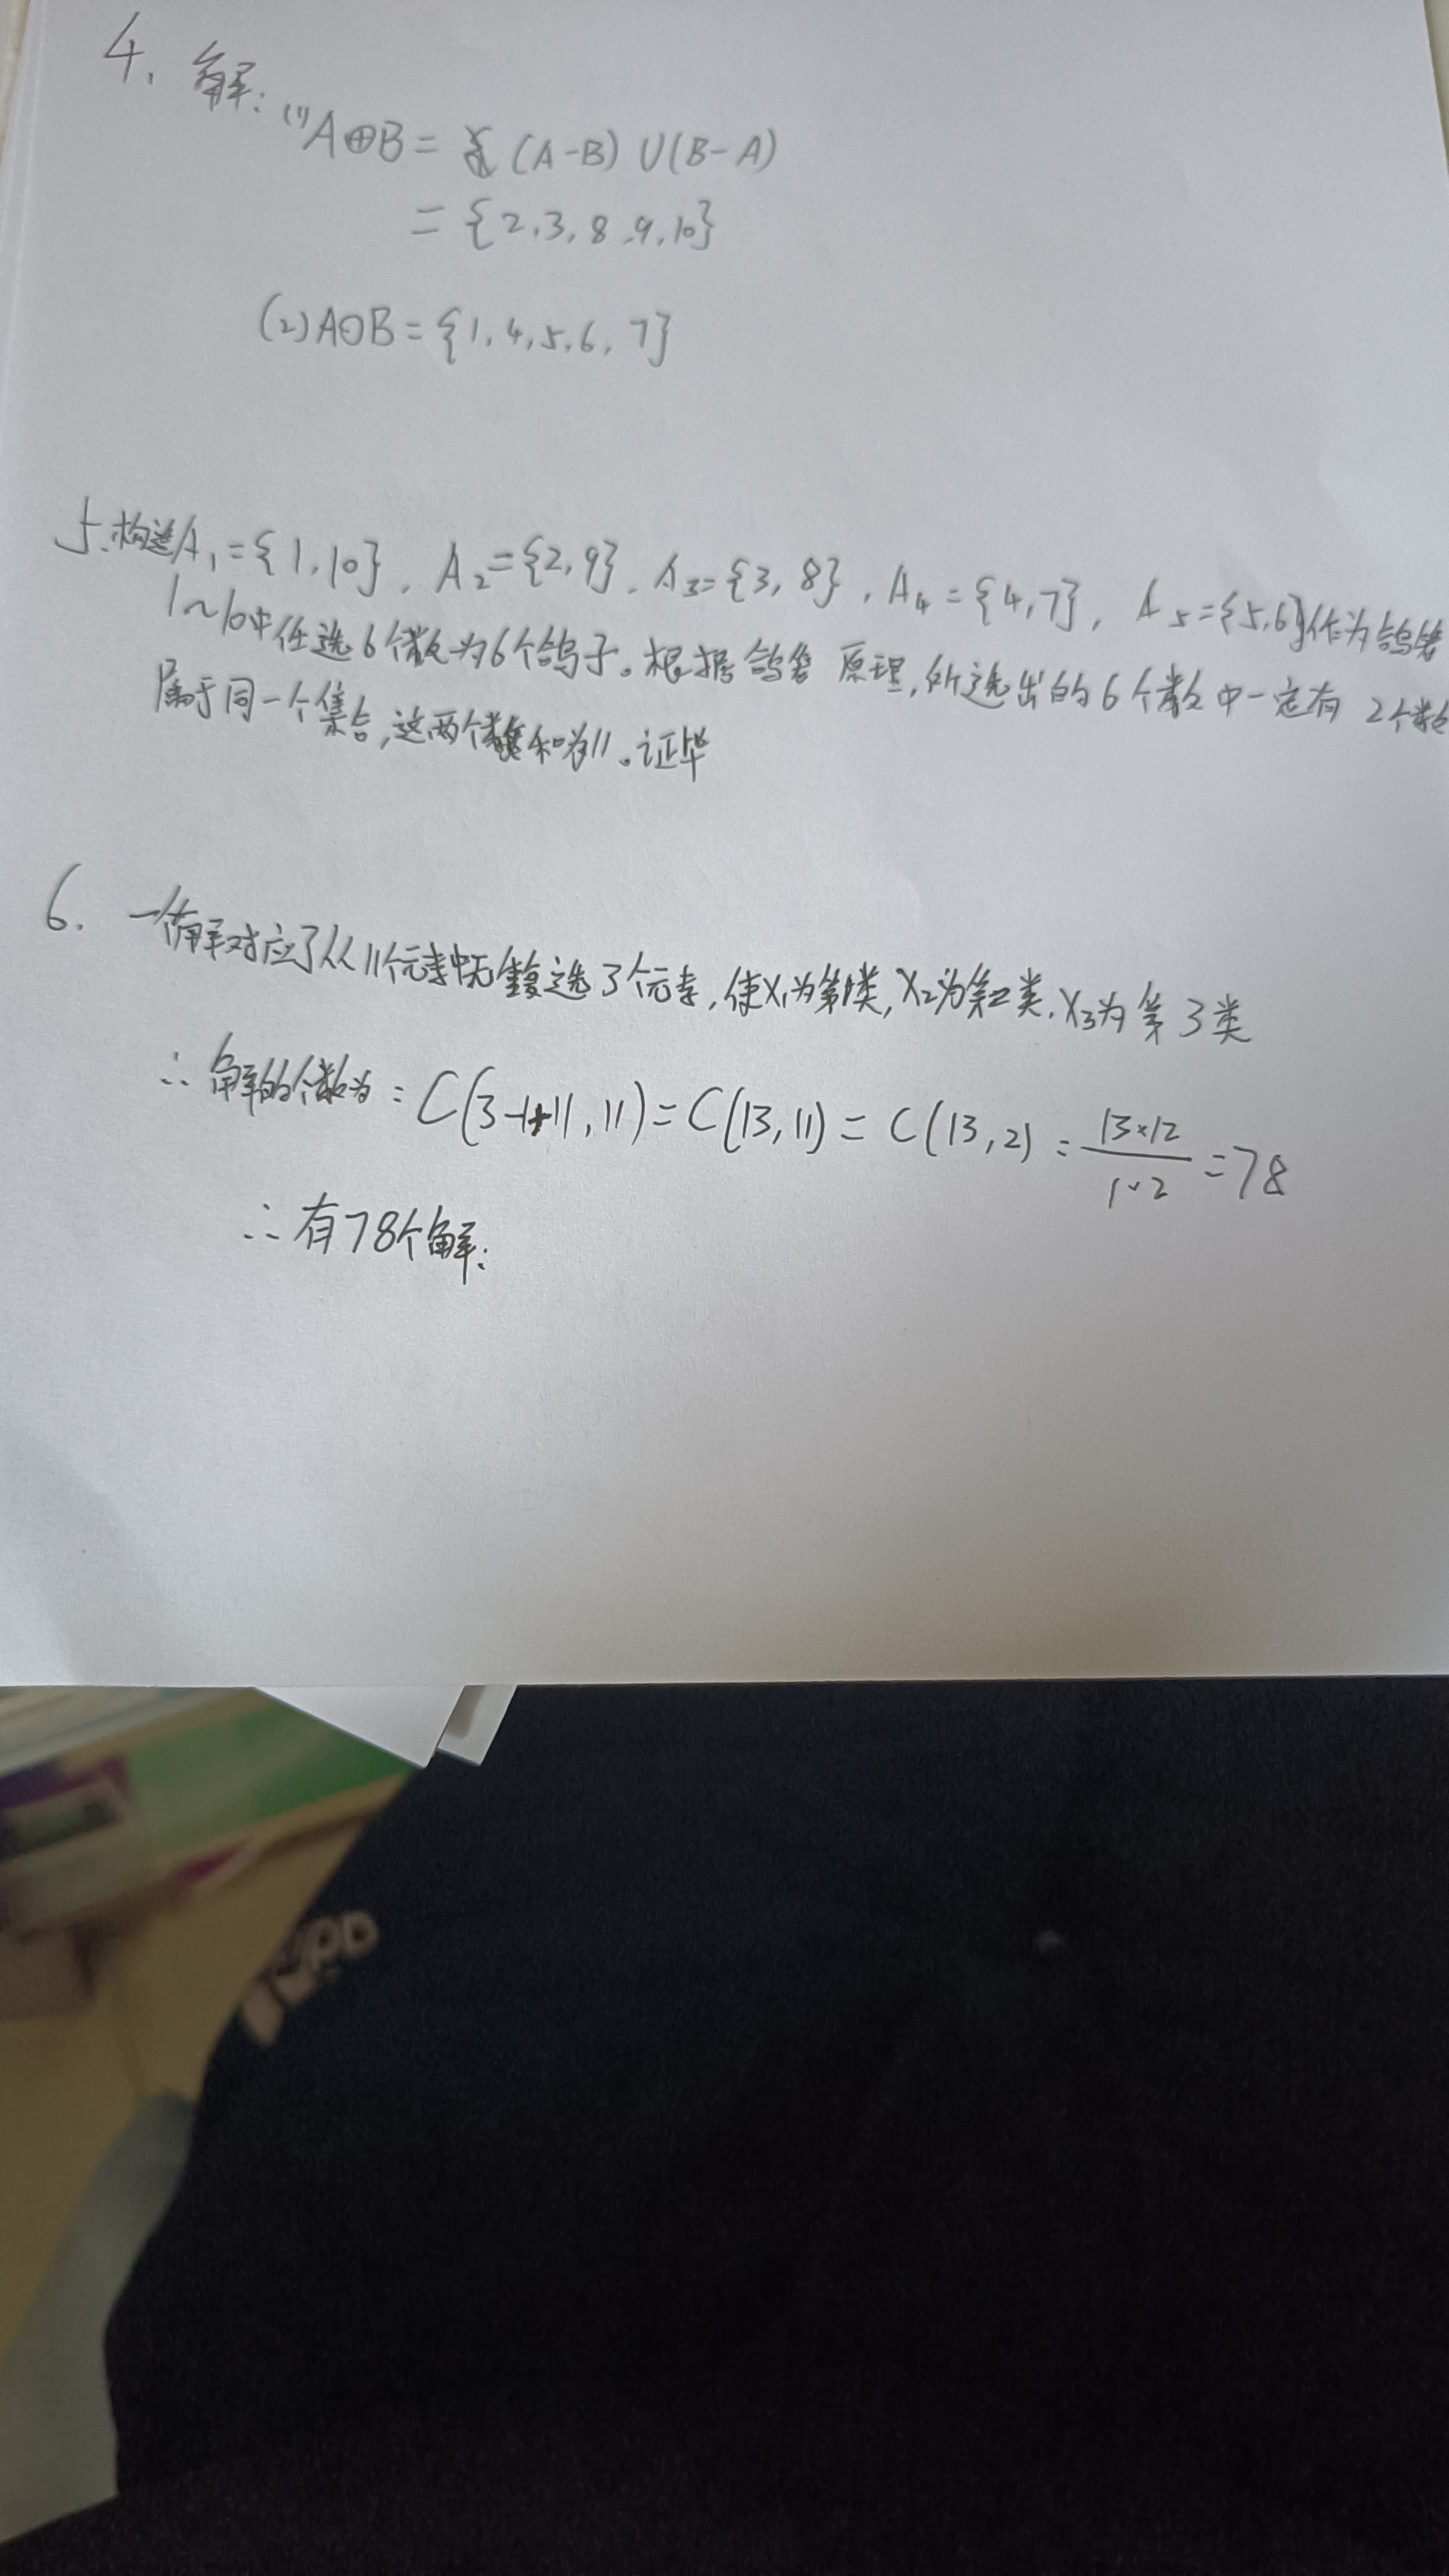 4. 解: (1) A⊕B = (A-B) ∪ (B-A)
= {2,3,8,9,10}
(2) A⊙B = {1,4,5,6,7}
5. 构造A₁={1,10}, A₂={2,9}, A₃={3,8}, A₄={4,7}, A₅={5,6}作为鸽巢
1~10中任选6个数为6个鸽子。根据鸽巢原理,所选出的6个数中一定有2个数
属于同一个集合,这两个数和为11。证毕
6. 一个解对应了从11个元素中选3个元素,使X₁为第1类,X₂为第2类,X₃为第3类
∴ 解的个数为: C(3-1+11,11)=C(13,11)=C(13,2)=13×12/1×2=78
∴ 有78个解.